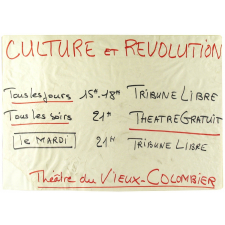 CULTURE et REVOLUTION
Tous les jours 15H-18H TRIBUNE LIBRE
Tous les soirs 21H THEATRE GRATUIT
le MARDI 21H TRIBUNE LIBRE
Théâtre du VIEUX-COLOMBIER